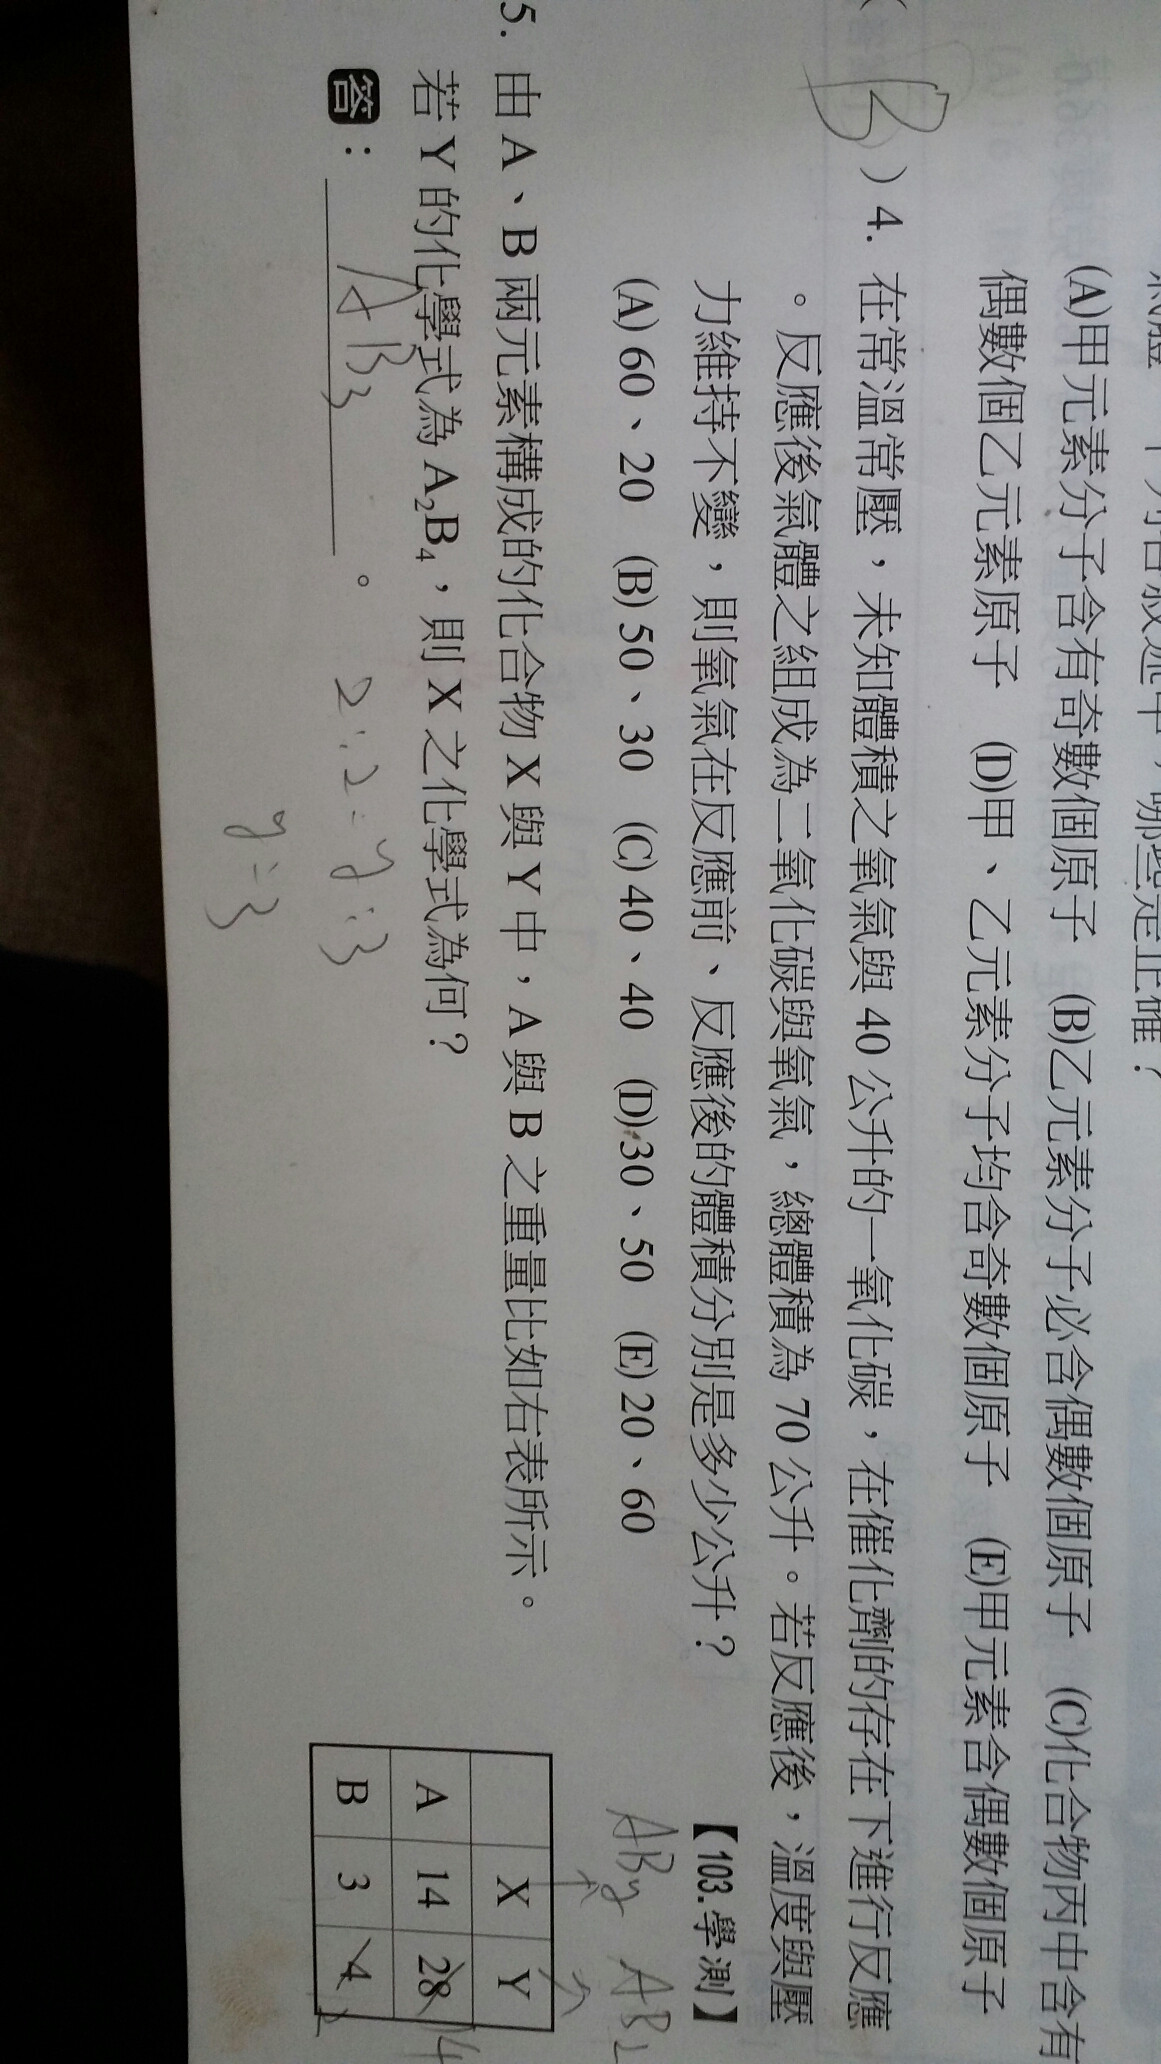 (A)甲元素分子含有奇數個原子 (B)乙元素分子必含偶數個原子 (C)化合物丙中含有
偶數個乙元素原子 (D)甲、乙元素分子均含奇數個原子 (E)甲元素含偶數個原子
( B )4. 在常溫常壓，未知體積之氧氣與 40 公升的一氧化碳，在催化劑的存在下進行反應
。反應後氣體之組成為二氧化碳與氧氣，總體積為 70 公升。若反應後，溫度與壓
力維持不變，則氧氣在反應前、反應後的體積分別是多少公升？ 【103.學測】
(A) 60、20 (B) 50、30 (C) 40、40 (D) 30、50 (E) 20、60
ABy AB2
5. 由 A、B 兩元素構成的化合物 X 與 Y 中，A 與 B 之重量比如右表所示。
若 Y 的化學式為 A₂B₄，則 X 之化學式為何？
答： AB3 。
2:2=y:3
y=3
X Y
A 14 28 14
B 3 4 2